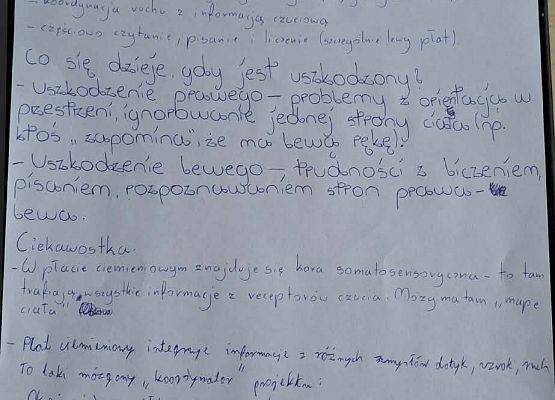 - koordynacja ruchu z informacją czuciową
- częściowo czytanie, pisanie i liczenie (szczególnie lewy płat).
Co się dzieje, gdy jest uszkodzony?
- Uszkodzenie prawego - problemy z orientacją w
przestrzeni, ignorowanie jednej strony ciała (np.
ktoś „zapomina", że ma lewą rękę).
- Uszkodzenie lewego - trudności z liczeniem,
pisaniem, rozpoznawaniem stron prawa -
lewa.
Ciekawostka.
- W płacie ciemieniowym znajduje się kora somatosensoryczna - to tam
trafiają wszystkie informacje z receptorów czucia. Mózg ma tam „mapę
ciała"
- Płat ciemieniowy integruje informacje z różnych zmysłów dotyk, wzrok, ruch
To taki mózgowy „koordynator" projektu: